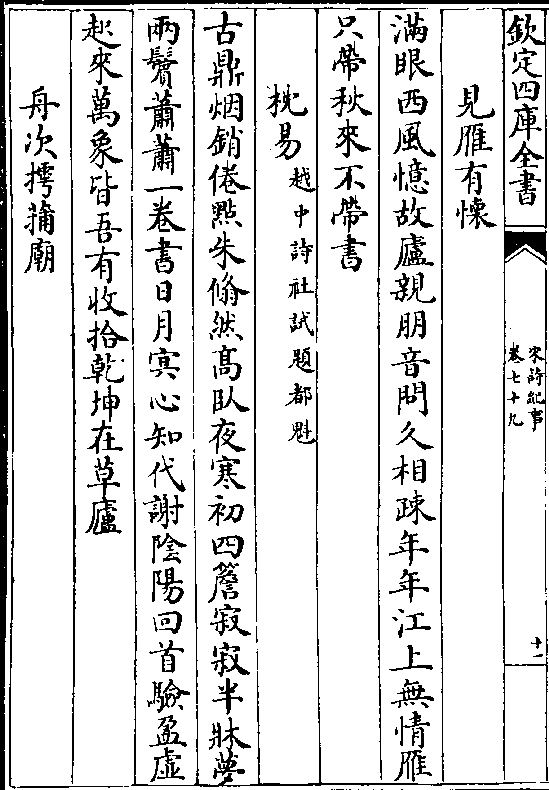 欽定四庫全書
宋詩紀事
卷七十九
十一
見雁有懷
滿眼西風憶故廬親朋音問久相疎年年江上無情雁
只帶秋來不帶書
枕易越中詩社試題都魁
古鼎烟銷倦點朱翛然髙臥夜寒初四簷寂寂半牀夢
兩鬢蕭蕭一卷書日月冥心知代謝陰陽回首驗盈虛
起來萬象皆吾有收拾乾坤在草廬
舟次摴蒱廟